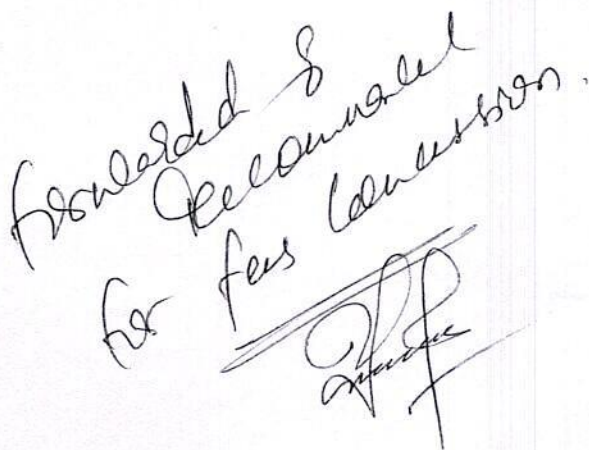 Forwarded &
Recommended
for fees concession.